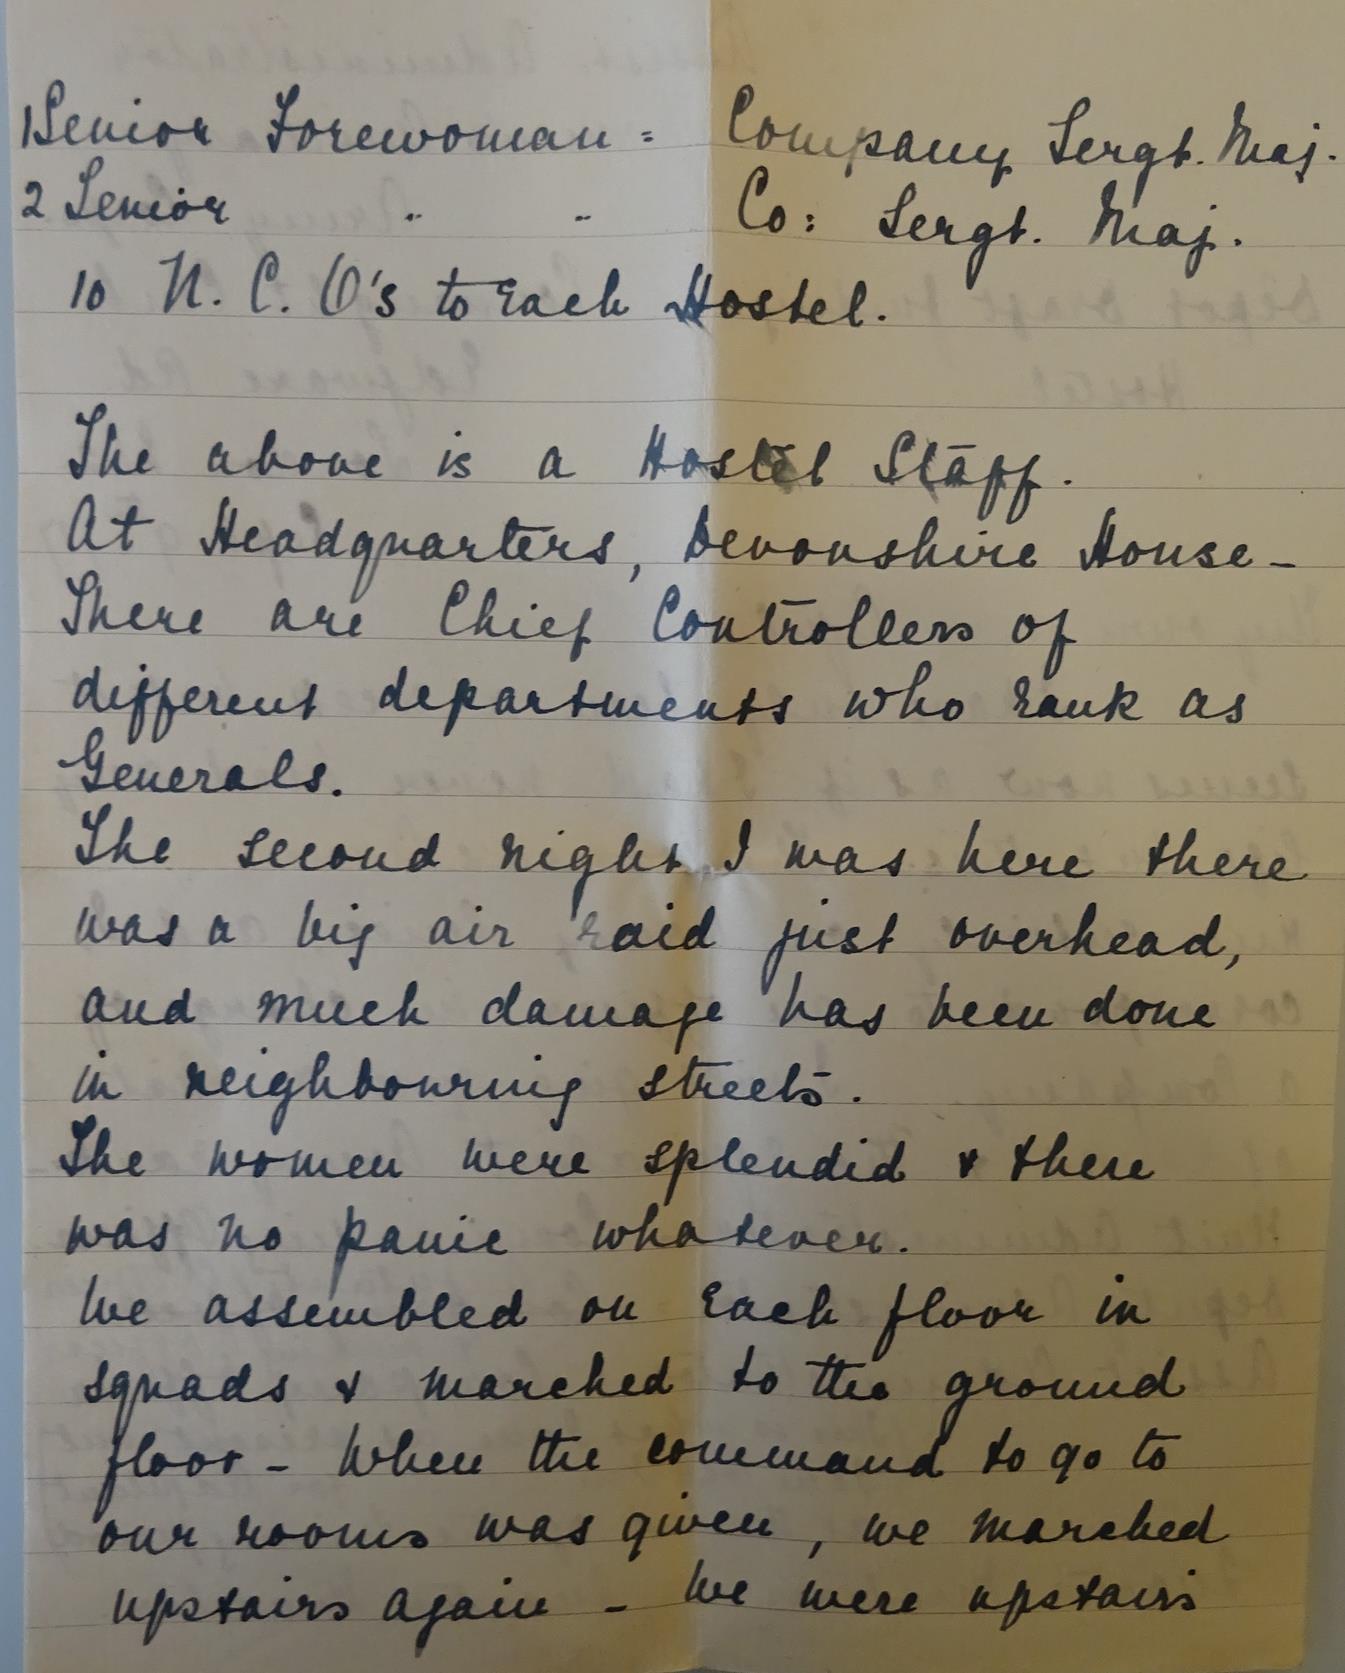 1 Senior Forewoman = Company Sergt. Maj.
2 Senior " " Co: Sergt. Maj.
10 N. C. O's to Each Hostel.
The above is a Hostel Staff.
At Headquarters, Devonshire House -
There are Chief Controllers of
different departments who rank as
Generals.
The second night I was here there
was a big air raid just overhead,
and much damage has been done
in neighbouring streets.
The women were splendid & there
was no panic whatever.
We assembled on Each floor in
squads & marched to the ground
floor - When the command to go to
our rooms was given, we marched
upstairs again - We were upstairs